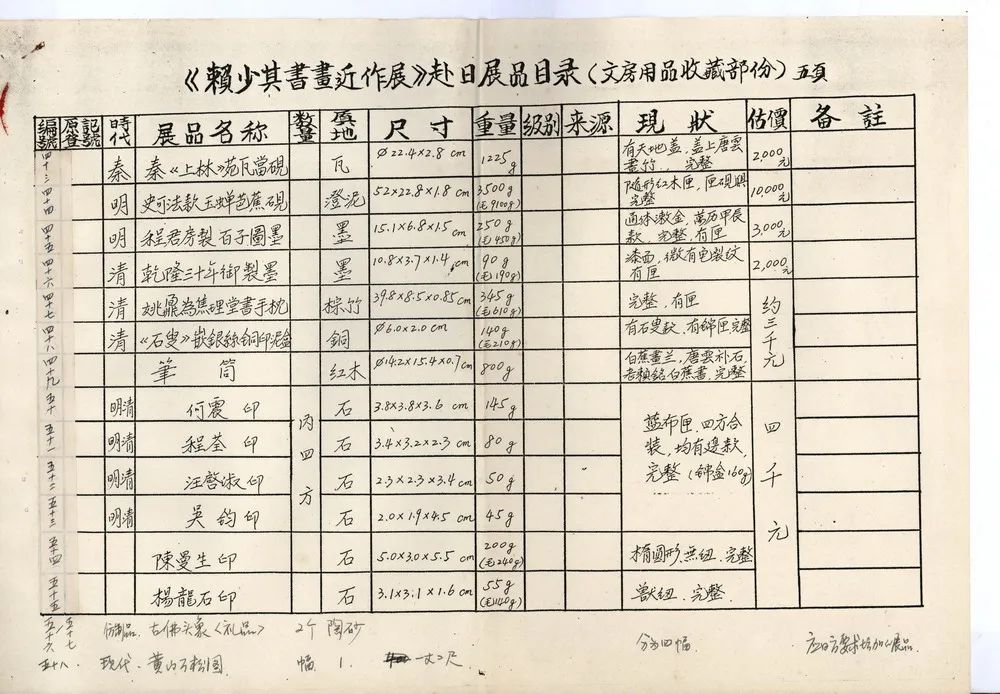 《賴少其書畫近作展》赴日展品目录(文房用品收藏部份)五頁
編號 原登記號 時代 展品名称 数量 質地 尺寸 重量 级别 来源 現狀 估價 备註
四十三 秦 秦《上林》苑瓦當硯 瓦 Ø22.4×2.8 cm 1225g 有天地盖,盖上唐雲書竹,完整 2000元
四十四 明 史可法款玉蝉芭蕉硯 澄泥 52×22.8×1.8 cm 3500g (毛9100g) 随形红木匣,匣硯與完整 10,000元
四十五 明 程君房製百子圖墨 墨 15.1×6.8×1.5 cm 250g (毛450g) 通体漱金,萬历甲辰款,完整,有匣 3,000元
四十六 清 乾隆三十年御製墨 墨 10.8×3.7×1.4 cm 90g (毛190g) 漆面,微有龟裂纹 有匣 2,000元
四十七 清 姚鼐為焦理堂書手枕 棕竹 39.8×8.5×0.85 cm 345g (毛610g) 完整.有匣
四十八 清 《石叟》嵌銀絲铜印泥盒 銅 Ø6.0×2.0 cm 140g (毛210g) 有石叟款,有锦匣完整 约三千元
四十九 筆筒 红木 Ø14.2×15.4×0.7 cm 800g 白蕉畫兰,唐雲补石,赖銘白蕉書.完整
五十 明清 何震印 石 3.8×3.8×3.6 cm 145g
五十一 明清 程荃印 内四方 石 3.4×3.2×2.3 cm 80g 蓝布匣.四方合装,均有邊款,完整(锦盒160g) 四千元
五十二 明清 汪啓淑印 石 2.3×2.3×3.4 cm 50g
五十三 明清 吳鈞印 石 2.0×1.9×4.5 cm 45g
五十四 陳曼生印 石 5.0×3.0×5.5 cm 200g (毛240g) 橢圓形.無纽.完整
五十五 楊龍石印 石 3.1×3.1×1.6 cm 55g (毛140g) 獸纽.完整.
五十六/五十七 仿制品. 古佛头象〈礼品〉 2个 陶砂
五十八. 現代. 黄山万松图 幅 1. 一丈二尺 分为四幅. 应日方要求增加展品.